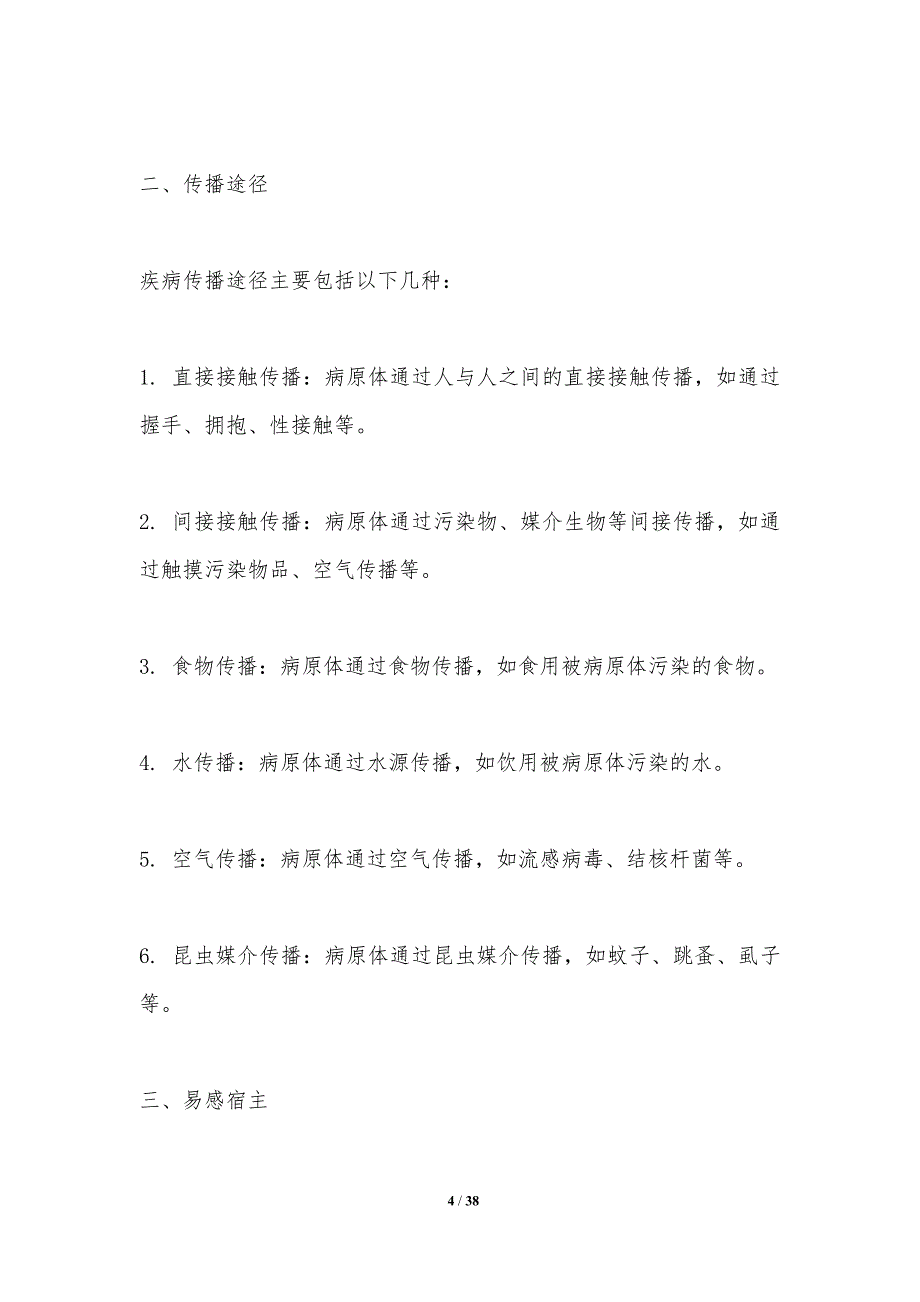 二、传播途径
疾病传播途径主要包括以下几种：
1. 直接接触传播：病原体通过人与人之间的直接接触传播，如通过
握手、拥抱、性接触等。
2. 间接接触传播：病原体通过污染物、媒介生物等间接传播，如通
过触摸污染物品、空气传播等。
3. 食物传播：病原体通过食物传播，如食用被病原体污染的食物。
4. 水传播：病原体通过水源传播，如饮用被病原体污染的水。
5. 空气传播：病原体通过空气传播，如流感病毒、结核杆菌等。
6. 昆虫媒介传播：病原体通过昆虫媒介传播，如蚊子、跳蚤、虱子
等。
三、易感宿主
4 / 38